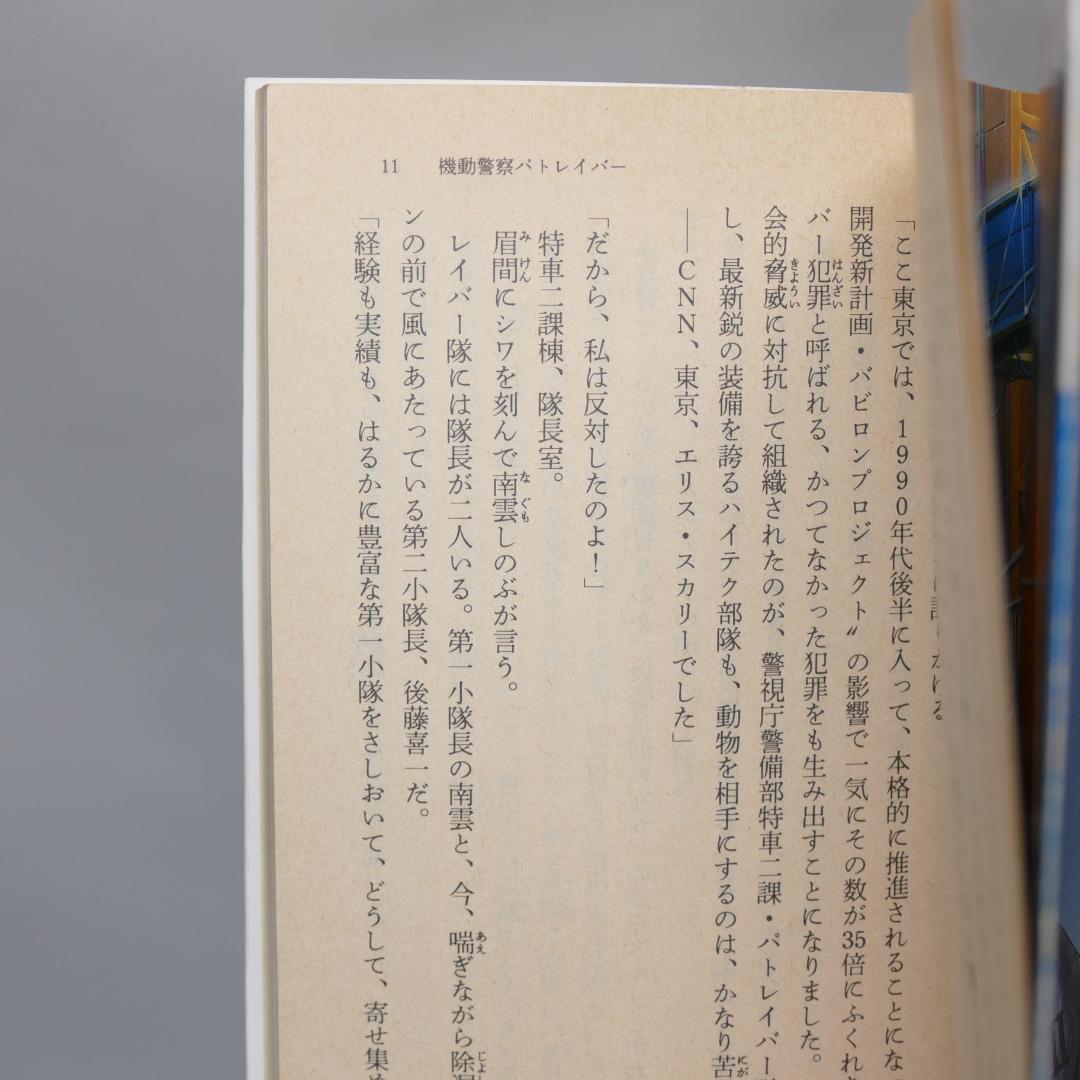 11 機動警察パトレイバー
「ここ東京では、1990年代後半に入って、本格的に推進されることにな
開発新計画・バビロンプロジェクト〟の影響で一気にその数が35倍にふくれ
バー犯罪と呼ばれる、かつてなかった犯罪をも生み出すことになりました。
会的脅威に対抗して組織されたのが、警視庁警備部特車二課・パトレイバー
し、最新鋭の装備を誇るハイテク部隊も、動物を相手にするのは、かなり苦
――CNN、東京、エリス・スカリーでした」
「だから、私は反対したのよ！」
特車二課棟、隊長室。
眉間にシワを刻んで南雲しのぶが言う。
レイバー隊には隊長が二人いる。第一小隊長の南雲と、今、喘ぎながら除湿
ンの前で風にあたっている第二小隊長、後藤喜一だ。
「経験も実績も、はるかに豊富な第一小隊をさしおいて、どうして、寄せ集め